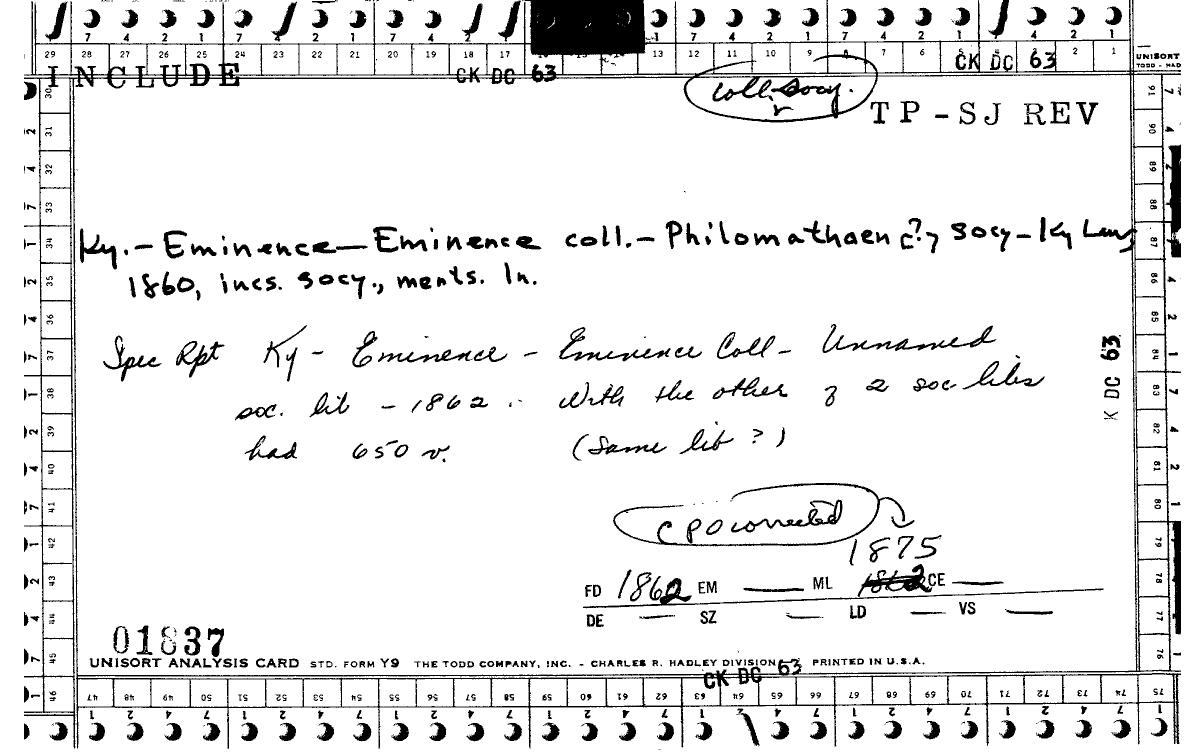 7 4 2 1 7 4 2 1 7 4 2 1 7 4 2 1 7 4 2 1 7 4 2 1
29 28 27 26 25 24 23 22 21 20 19 18 17 13 12 11 10 9 8 7 6 5 4 3 2 1
UNISORT
INCLUDE CK DC 63 CK DC 63
coll. socy.
TP-SJ REV
Ky.- Eminence - Eminence coll.- Philomathaen c?, socy - Ky Laws
1860, incs. socy., ments. ln.
Spec Rpt Ky - Eminence - Eminence Coll - Unnamed
soc. lib - 1862. With the other of 2 soc libs
had 650 v. (Same lib?)
K DC 63
CPO corrected
1875
FD 1862 EM — ML 1862 CE —
DE — SZ — LD — VS —
01837
UNISORT ANALYSIS CARD STD. FORM Y9 THE TODD COMPANY, INC. - CHARLES R. HADLEY DIVISION PRINTED IN U.S.A.
CK DC 63
46 47 48 49 50 51 52 53 54 55 56 57 58 59 60 61 62 63 64 65 66 67 68 69 70 71 72 73 74 75